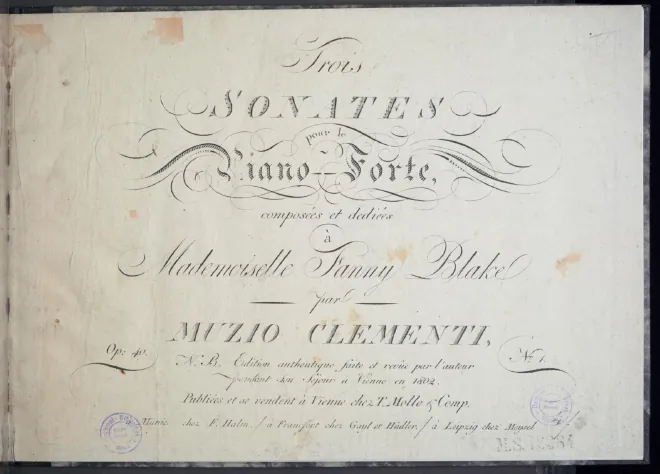 Trois
SONATES
pour le
Piano-Forte,
composées et dediées
à
Mademoiselle Fanny Blake
par
MUZIO CLEMENTI,
Op: 40. No 1.
N.B. Edition authentique faite et revüe par l'auteur
pendant son Séjour a Vienne en 1802.
Publiées et se vendent à Vienne chez T. Mollo & Comp.
Munic chez F. Halm. / à Francfort chez Gayl et Hädler. / à Leipzig chez